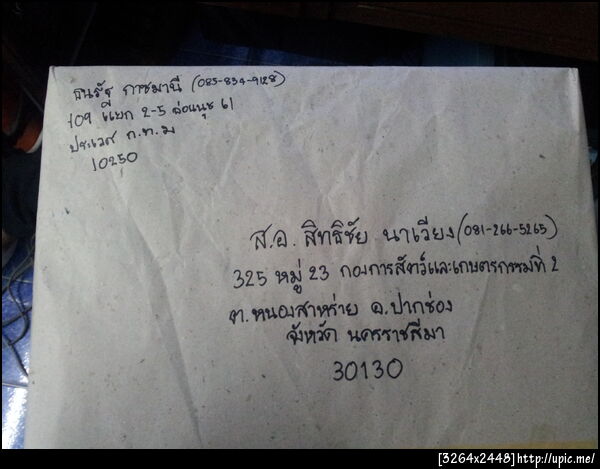 ธนรัช ภาชมานี (085-834-9128)
109 แยก 2-5 อ่อนนุช 61
ประเวศ ก.ท.ม
10250
ส.อ. สิทธิชัย นาเวียง (081-266-5265)
325 หมู่ 23 กองการสัตว์และเกษตรกรรมที่ 2
ต.หนองสาหร่าย อ.ปากช่อง
จังหวัด นครราชสีมา
30130
[3264x2448]http://upic.me/